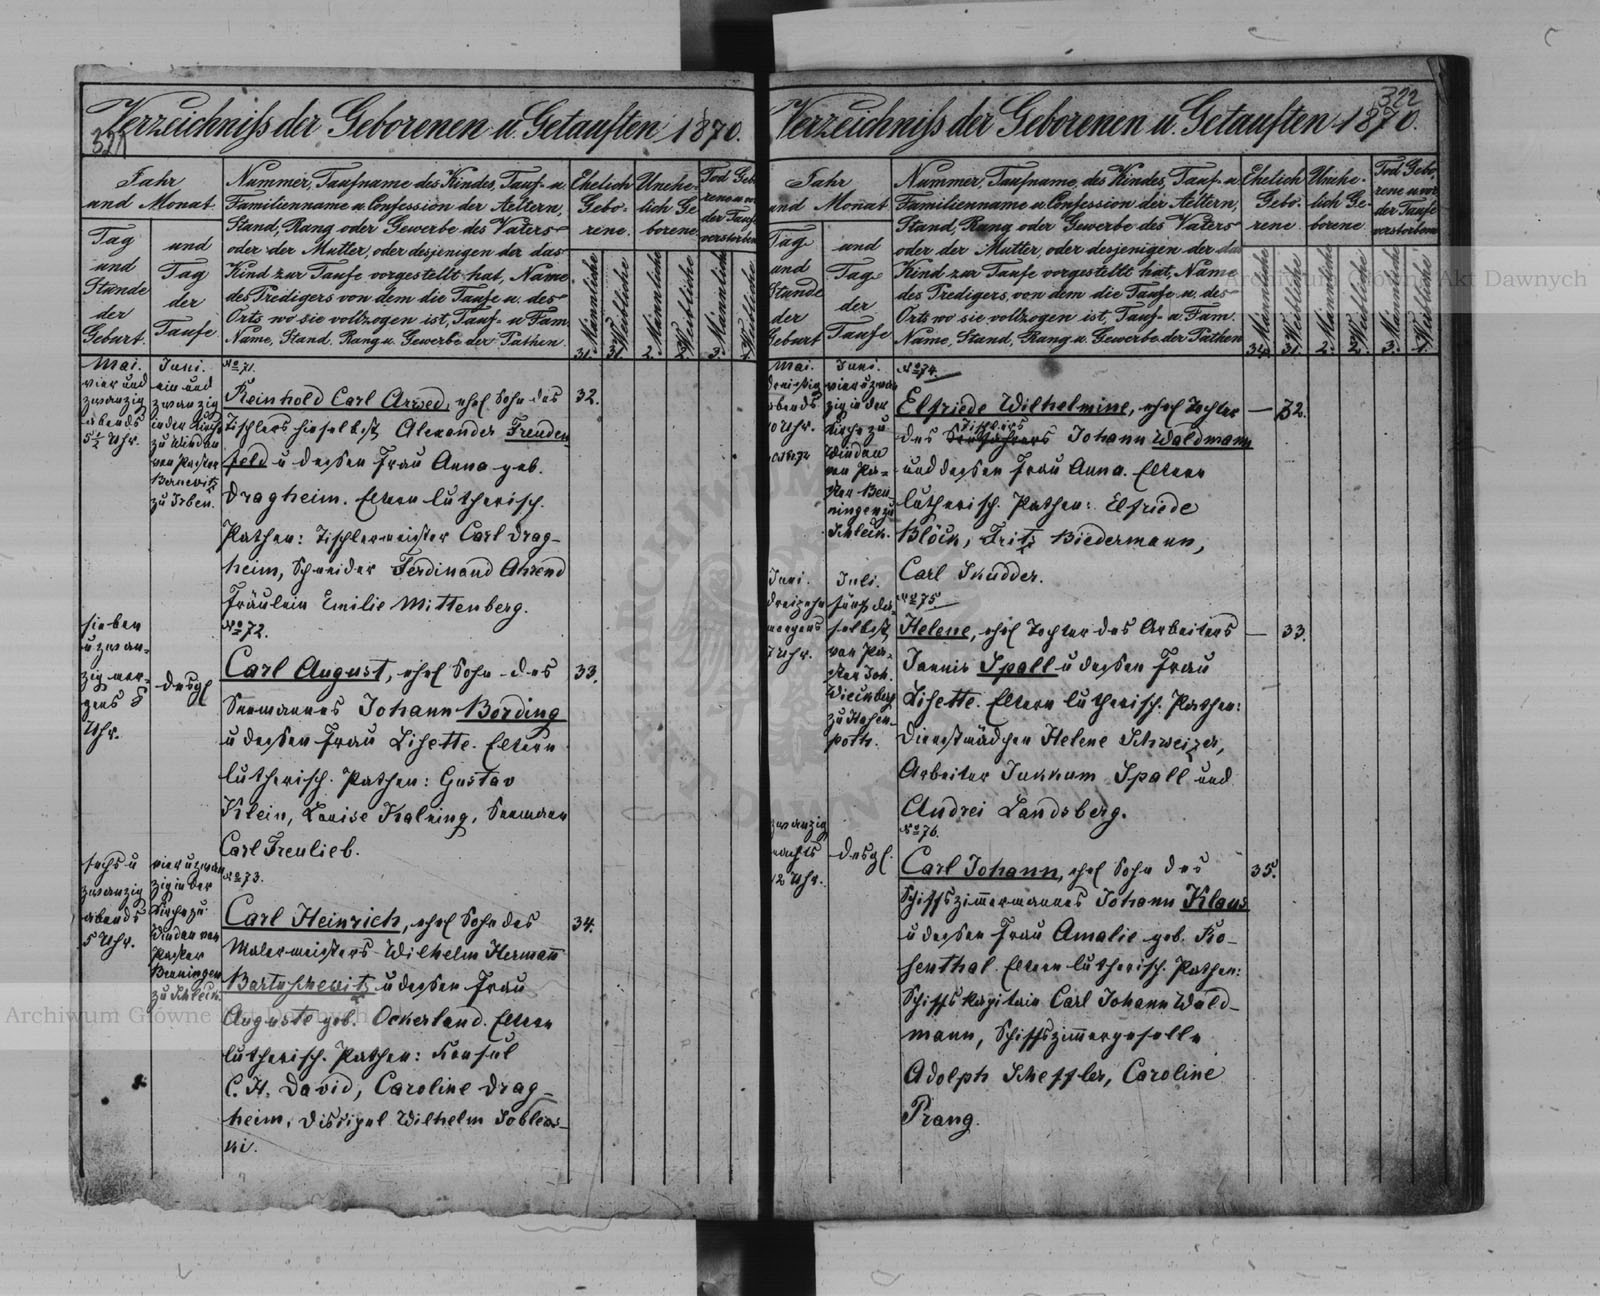 Verzeichniß der Geborenen u. Getauften 1870.
321
Jahr
und Monat
Tag
und
Stunde
der
Geburt.
und
Tag
der
Taufe
Nummer, Taufname des Kindes, Tauf- u.
Familienname u. Confession der Aeltern,
Stand, Rang oder Gewerbe des Vaters
oder der Mutter, oder desjenigen der das
Kind zur Taufe vorgestellt hat, Name
des Predigers von dem die Taufe u. des
Orts wo sie vollzogen ist, Tauf- u. Fam.
Name, Stand, Rang u. Gewerbe der Pathen.
Ehelich
Gebo-
rene.
Unehe-
lich Ge
borene
Tod Gebo
rene u. vor
der Taufe
verstorbene
Männliche
Weibliche
Männliche
Weibliche
Männliche
Weibliche
31. 31. 2. 2. 3. 1.
Mai.
vier und
zwanzig
abends
5½ Uhr.
Juni.
ein und
zwanzig
in der Kirche
zu Windau
von Pastor
Bernewitz
zu Irben.
No 71.
Reinhold Carl Arwed, ehel. Sohn des
Tischlers hieselbst Alexander Freuden
feld u dessen Frau Anna geb.
Dragheim. Eltern lutherisch.
Pathen: Tischlermeister Carl Drag-
heim, Schneider Ferdinand Ahrend
Fräulein Emilie Mittenberg.
32.
sieben
u zwan-
zig mor-
gens 5
Uhr.
desgl
No 72.
Carl August, ehel Sohn des
Seemannes Johann Bording
u dessen Frau Lisette. Eltern
lutherisch. Pathen: Gustav
Klein, Louise Kalning, Seemann
Carl Freulieb.
33.
sechs u
zwanzig
abends
5 Uhr.
vier u zwan
zig in der
Kirche zu
Windau von
Pastor
Benningen
zu Schleck.
No 73.
Carl Heinrich, ehel Sohn des
Malermeisters Wilhelm Hermann
Bartuschewitz u dessen Frau
Auguste geb. Ockerland. Eltern
lutherisch. Pathen: Konsul
C. H. David, Caroline Drag-
heim, Discipel Wilhelm Soblews-
ki.
34.
Verzeichniß der Geborenen u. Getauften 1870.
322
Jahr
und Monat
Tag
und
Stunde
der
Geburt
und
Tag
der
Taufe
Nummer, Taufname des Kindes, Tauf- u
Familienname u. Confession der Aeltern,
Stand, Rang oder Gewerbe des Vaters
oder der Mutter, oder desjenigen der das
Kind zur Taufe vorgestellt hat, Name
des Predigers, von dem die Taufe u. des
Orts wo sie vollzogen ist, Tauf- u. Fam.
Name, Stand, Rang u. Gewerbe der Pathen
Ehelich
Gebo-
rene
Unehe-
lich Ge-
borene
Tod Gebo,
rene u. vor
der Taufe
verstorbene
Männliche
Weibliche
Männliche
Weibliche
Männliche
Weibliche
34. 31. 2. 2. 3. 1.
Mai.
dreissig
abends
10 Uhr.
Juni.
vier u zwan
zig in der
Kirche zu
Windau
von Pa-
stor Ben
ningen zu
Schleck.
No 74.
Elfriede Wilhelmine, ehel Tochter
des Tischlers Johann Waldmann
und dessen Frau Anna. Eltern
lutherisch. Pathen: Elfriede
Blöck, Fritz Biedermann,
Carl Skudder.
— 32.
Juni.
dreizehn
morgens
Uhr.
Juli.
fünf da-
selbst
von Pa-
stor Joh.
Wieckberg
zu Hasen-
poth.
No 75.
Helene, ehel Tochter des Arbeiters
Jannis Spall u dessen Frau
Lisette. Eltern lutherisch. Pathen:
Dienstmädchen Helene Schweizer,
Arbeiter Junkum Spall und
Andrei Landsberg.
— 33.
zwanzig
nachts
12 Uhr.
desgl.
No 76.
Carl Johann, ehel Sohn des
Schiffszimmermannes Johann Klaus
u dessen Frau Amalie geb. Ro-
senthal. Eltern lutherisch. Pathen:
Schiffskapitain Carl Johann Wald-
mann, Schiffszimmergeselle
Adolph Scheffler, Caroline
Prang.
35.
Archiwum Główne Akt Dawnych
Archiwum Główne Akt Dawnych